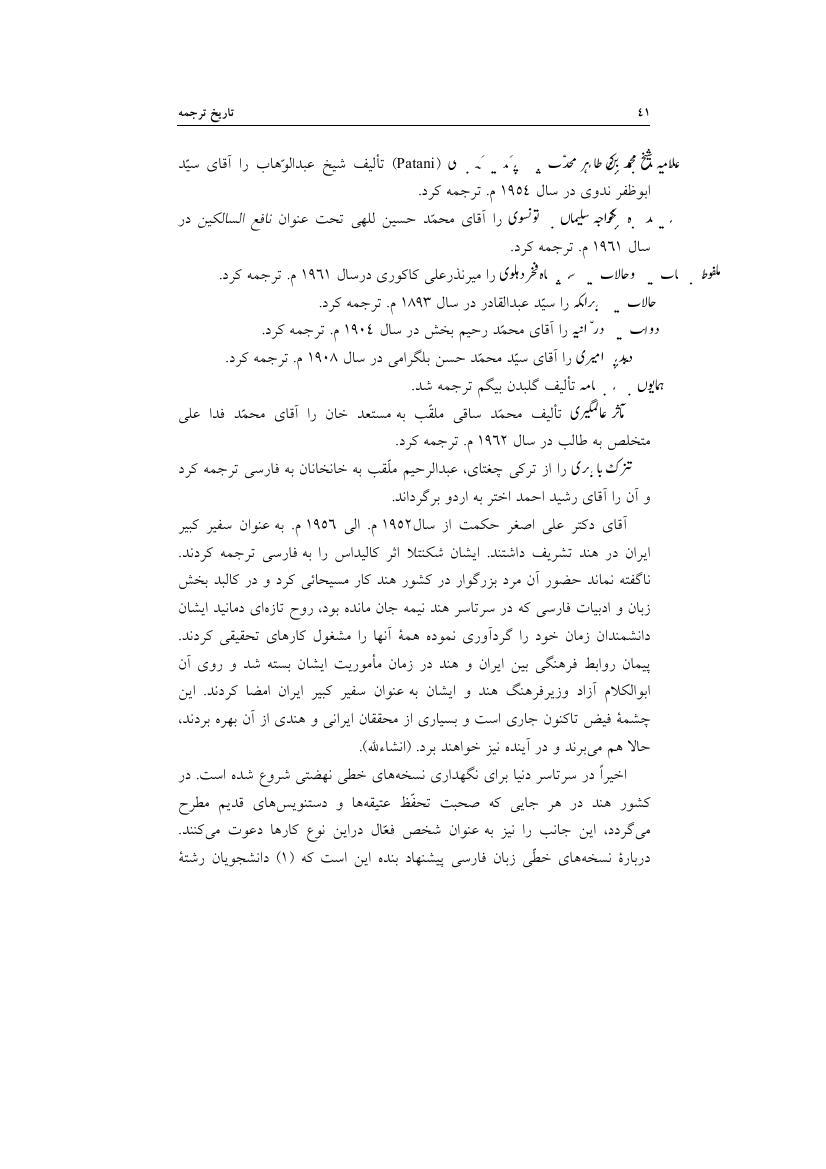 ٤١ تاریخ ترجمه
شیخ محمد طاهر محدّث (Patani) تألیف شیخ عبدالوّهاب را آقای سیّد
ابوظفر ندوی در سال ١٩٥٤ م. ترجمه کرد.
خواجه سلیمان تونسوی را آقای محمّد حسین للهی تحت عنوان نافع السالکین در
سال ١٩٦١ م. ترجمه کرد.
وحالات فخر دہلوی را میرنذرعلی کاکوری درسال ١٩٦١ م. ترجمه کرد.
حالات برامکہ را سیّد عبدالقادر در سال ١٨٩٣ م. ترجمه کرد.
را آقای محمّد رحیم بخش در سال ١٩٠٤ م. ترجمه کرد.
امیری را آقای سیّد محمّد حسن بلگرامی در سال ١٩٠٨ م. ترجمه کرد.
ہمایوں نامہ تألیف گلبدن بیگم ترجمه شد.
مآثر عالمگیری تألیف محمّد ساقی ملقّب به مستعد خان را آقای محمّد فدا علی
متخلص به طالب در سال ١٩٦٢ م. ترجمه کرد.
تزک بابری را از ترکی چغتای، عبدالرحیم ملّقب به خانخانان به فارسی ترجمه کرد
و آن را آقای رشید احمد اختر به اردو برگرداند.
آقای دکتر علی اصغر حکمت از سال١٩٥٢ م. الی ١٩٥٦ م. به عنوان سفیر کبیر
ایران در هند تشریف داشتند. ایشان شکنتلا اثر کالیداس را به فارسی ترجمه کردند.
ناگفته نماند حضور آن مرد بزرگوار در کشور هند کار مسیحائی کرد و در کالبد بخش
زبان و ادبیات فارسی که در سرتاسر هند نیمه جان مانده بود، روح تازه‌ای دمانید ایشان
دانشمندان زمان خود را گردآوری نموده همۀ آنها را مشغول کارهای تحقیقی کردند.
پیمان روابط فرهنگی بین ایران و هند در زمان مأموریت ایشان بسته شد و روی آن
ابوالکلام آزاد وزیرفرهنگ هند و ایشان به عنوان سفیر کبیر ایران امضا کردند. این
چشمۀ فیض تاکنون جاری است و بسیاری از محققان ایرانی و هندی از آن بهره بردند،
حالا هم می‌برند و در آینده نیز خواهند برد. (انشاءلله).
اخیراً در سرتاسر دنیا برای نگهداری نسخه‌های خطی نهضتی شروع شده است. در
کشور هند در هر جایی که صحبت تحفّظ عتیقه‌ها و دستنویس‌های قدیم مطرح
می‌گردد، این جانب را نیز به عنوان شخص فعّال دراین نوع کارها دعوت می‌کنند.
دربارۀ نسخه‌های خطّی زبان فارسی پیشنهاد بنده این است که (١) دانشجویان رشتۀ